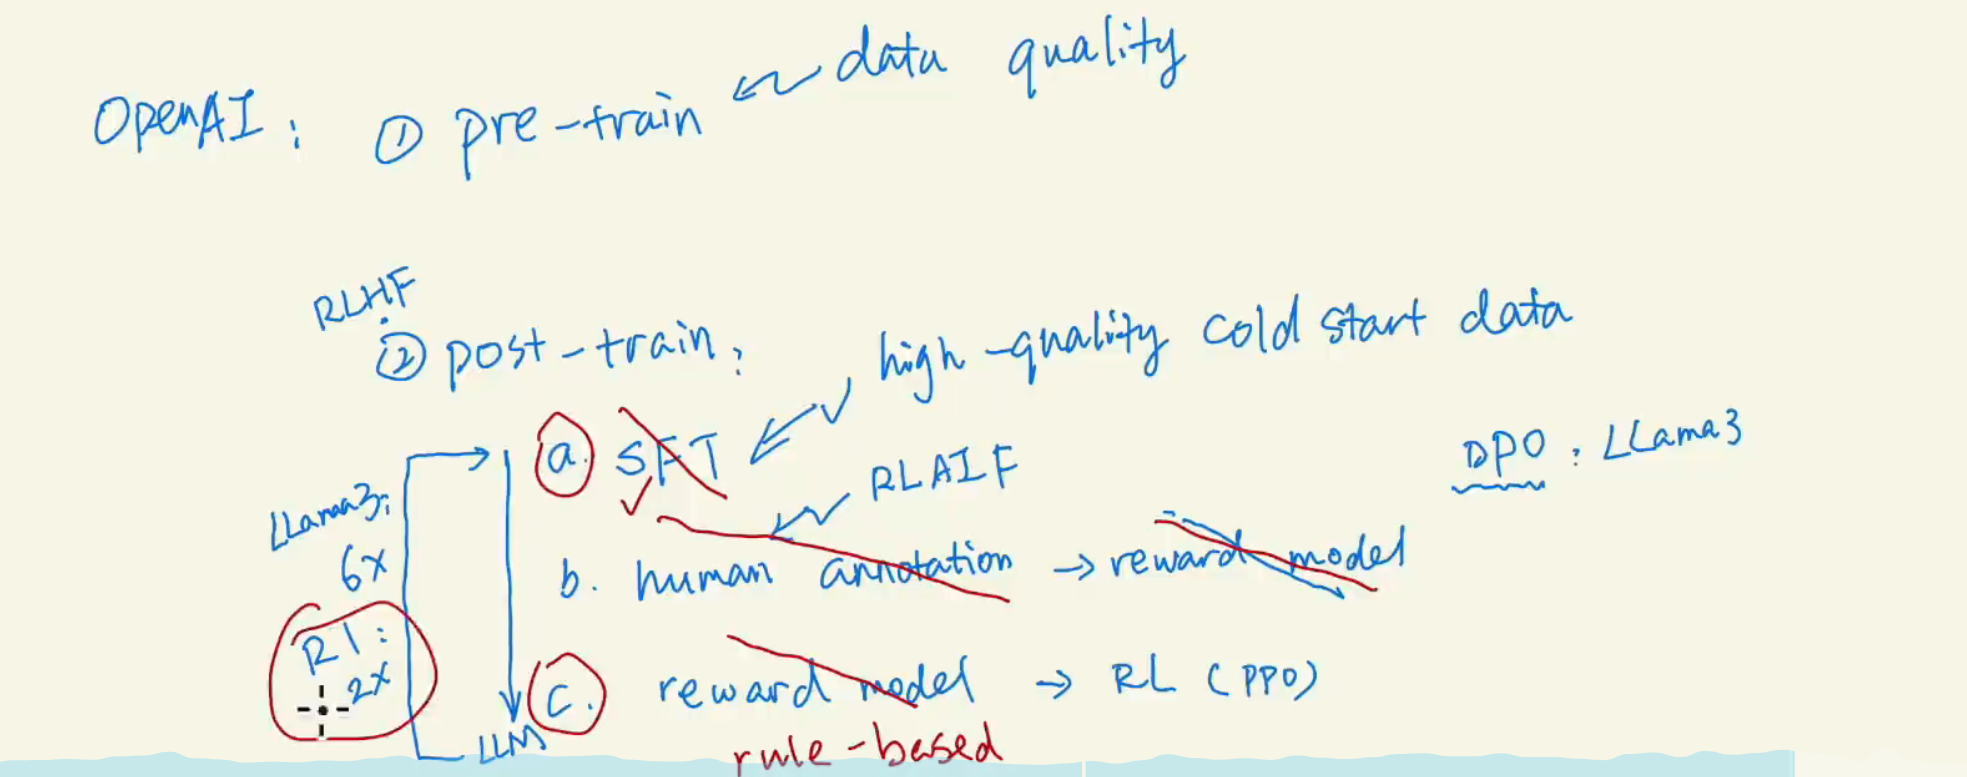 OpenAI: ① pre-train data quality
RLHF
② post-train: high-quality cold start data
a. SFT
DPO: LLama3
RLAIF
LLama3:
6x
b. human annotation → reward model
R1:
2x
c. reward model → RL (PPO)
LLM
rule-based